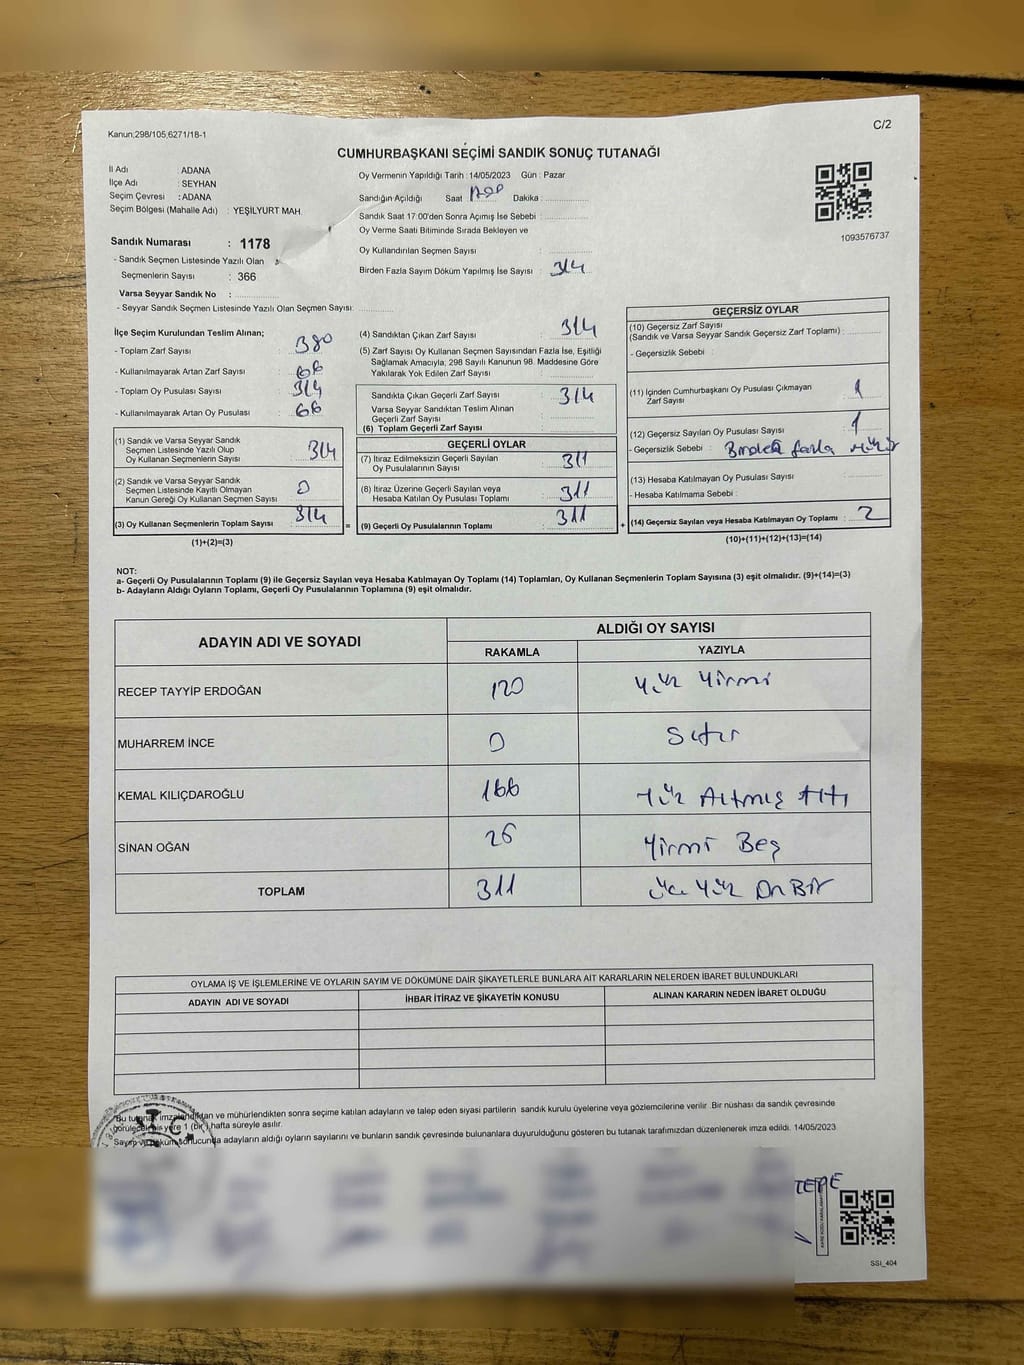 Kanun;298/105,6271/18-1
C/2
CUMHURBAŞKANI SEÇİMİ SANDIK SONUÇ TUTANAĞI
İl Adı : ADANA
İlçe Adı : SEYHAN
Seçim Çevresi : ADANA
Seçim Bölgesi (Mahalle Adı) : YEŞİLYURT MAH.
Sandık Numarası : 1178
- Sandık Seçmen Listesinde Yazılı Olan
Seçmenlerin Sayısı : 366
Varsa Seyyar Sandık No :
- Seyyar Sandık Seçmen Listesinde Yazılı Olan Seçmen Sayısı:
Oy Vermenin Yapıldığı Tarih : 14/05/2023 Gün : Pazar
Sandığın Açıldığı Saat Dakika
Sandık Saat 17:00'den Sonra Açımış İse Sebebi :
Oy Verme Saati Bitiminde Sırada Bekleyen ve
Oy Kullandırılan Seçmen Sayısı :
Birden Fazla Sayım Döküm Yapılmış İse Sayısı : 314
1093576737
İlçe Seçim Kurulundan Teslim Alınan;
- Toplam Zarf Sayısı : 380
- Kullanılmayarak Artan Zarf Sayısı : 66
- Toplam Oy Pusulası : 314
- Kullanılmayarak Artan Oy Pusulası : 66
(1) Sandık ve Varsa Seyyar Sandık
Seçmen Listesinde Yazılı Olup
Oy Kullanan Seçmenlerin Sayısı : 314
(2) Sandık ve Varsa Seyyar Sandık
Seçmen Listesinde Kayıtlı Olmayan
Kanun Gereği Oy Kullanan Seçmen Sayısı : 0
(3) Oy Kullanan Seçmenlerin Toplam Sayısı : 314 =
(1)+(2)=(3)
(4) Sandıktan Çıkan Zarf Sayısı : 314
(5) Zarf Sayısı Oy Kullanan Seçmen Sayısından Fazla İse, Eşitliği
Sağlamak Amacıyla; 298 Sayılı Kanunun 98. Maddesine Göre
Yakılarak Yok Edilen Zarf Sayısı :
Sandıkta Çıkan Geçerli Zarf Sayısı : 314
Varsa Seyyar Sandıktan Teslim Alınan
Geçerli Zarf Sayısı :
(6) Toplam Geçerli Zarf Sayısı :
GEÇERLİ OYLAR
(7) İtiraz Edilmeksizin Geçerli Sayılan
Oy Pusulalarının Sayısı : 311
(8) İtiraz Üzerine Geçerli Sayılan veya
Hesaba Katılan Oy Pusulası Toplamı : 311
(9) Geçerli Oy Pusulalarının Toplamı : 311 +
GEÇERSİZ OYLAR
(10) Geçersiz Zarf Sayısı
(Sandık ve Varsa Seyyar Sandık Geçersiz Zarf Toplamı) :
- Geçersizlik Sebebi :
(11) İçinden Cumhurbaşkanı Oy Pusulası Çıkmayan
Zarf Sayısı : 1
(12) Geçersiz Sayılan Oy Pusulası Sayısı : 1
- Geçersizlik Sebebi : Birden fazla mühür
(13) Hesaba Katılmayan Oy Pusulası Sayısı :
- Hesaba Katılmama Sebebi :
(14) Geçersiz Sayılan veya Hesaba Katılmayan Oy Toplamı : 2
(10)+(11)+(12)+(13)=(14)
NOT:
a- Geçerli Oy Pusulalarının Toplamı (9) ile Geçersiz Sayılan veya Hesaba Katılmayan Oy Toplamı (14) Toplamları, Oy Kullanan Seçmenlerin Toplam Sayısına (3) eşit olmalıdır. (9)+(14)=(3)
b- Adayların Aldığı Oyların Toplamı, Geçerli Oy Pusulalarının Toplamına (9) eşit olmalıdır.
ADAYIN ADI VE SOYADI ALDIĞI OY SAYISI
RAKAMLA YAZIYLA
RECEP TAYYİP ERDOĞAN 120 Yüz Yirmi
MUHARREM İNCE 0 Sıfır
KEMAL KILIÇDAROĞLU 166 Yüz Altmış Altı
SİNAN OĞAN 25 Yirmi Beş
TOPLAM 311 Üç Yüz On Bir
OYLAMA İŞ VE İŞLEMLERİNE VE OYLARIN SAYIM VE DÖKÜMÜNE DAİR ŞİKAYETLERLE BUNLARA AİT KARARLARIN NELERDEN İBARET BULUNDUKLARI
ADAYIN ADI VE SOYADI İHBAR İTİRAZ VE ŞİKAYETİN KONUSU ALINAN KARARIN NEDEN İBARET OLDUĞU
Bu tutanak imzalandıktan ve mühürlendikten sonra seçime katılan adayların ve talep eden siyasi partilerin sandık kurulu üyelerine veya gözlemcilerine verilir. Bir nüshası da sandık çevresinde
görülecek bir yere 1 (Bir) hafta süreyle asılır.
Sayım ve döküm sonucunda adayların aldığı oyların sayılarını ve bunların sandık çevresinde bulunanlara duyurulduğunu gösteren bu tutanak tarafımızdan düzenlenerek imza edildi. 14/05/2023
TEPE
SSİ_404